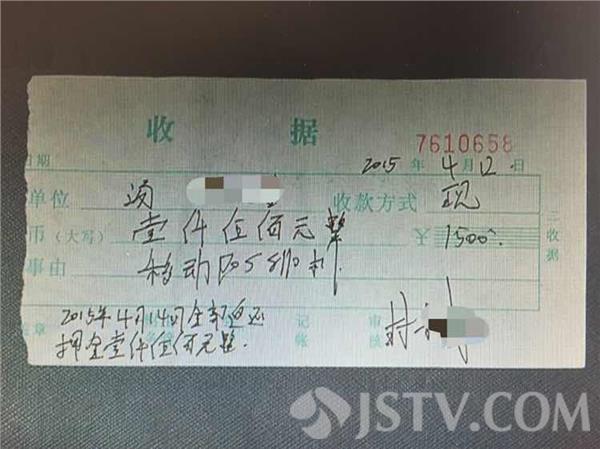 收 据
7610658
日期 2015 年 4 月 12 日
单位 汤 收款方式 现
币(大写) 壹仟伍佰元整 ¥ 1500.
事由 移动POS押金
2015年4月14日全部退还
押金壹仟伍佰元整.
盖章 记账 审核
二收据
JSTV.COM